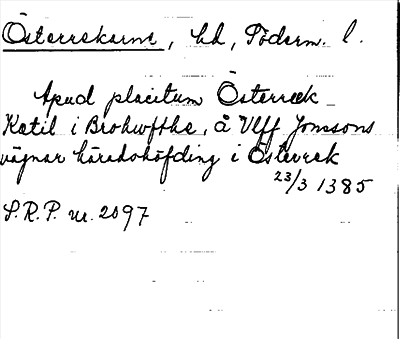 Österrekarne, hd, Söderm. l.
Apud placitum Österrek
Katil i Brohwffthe, å Vlff Jonssons
vägnar häradshöfding i Österrek
23/3 1385
S.R.P. nr. 2097